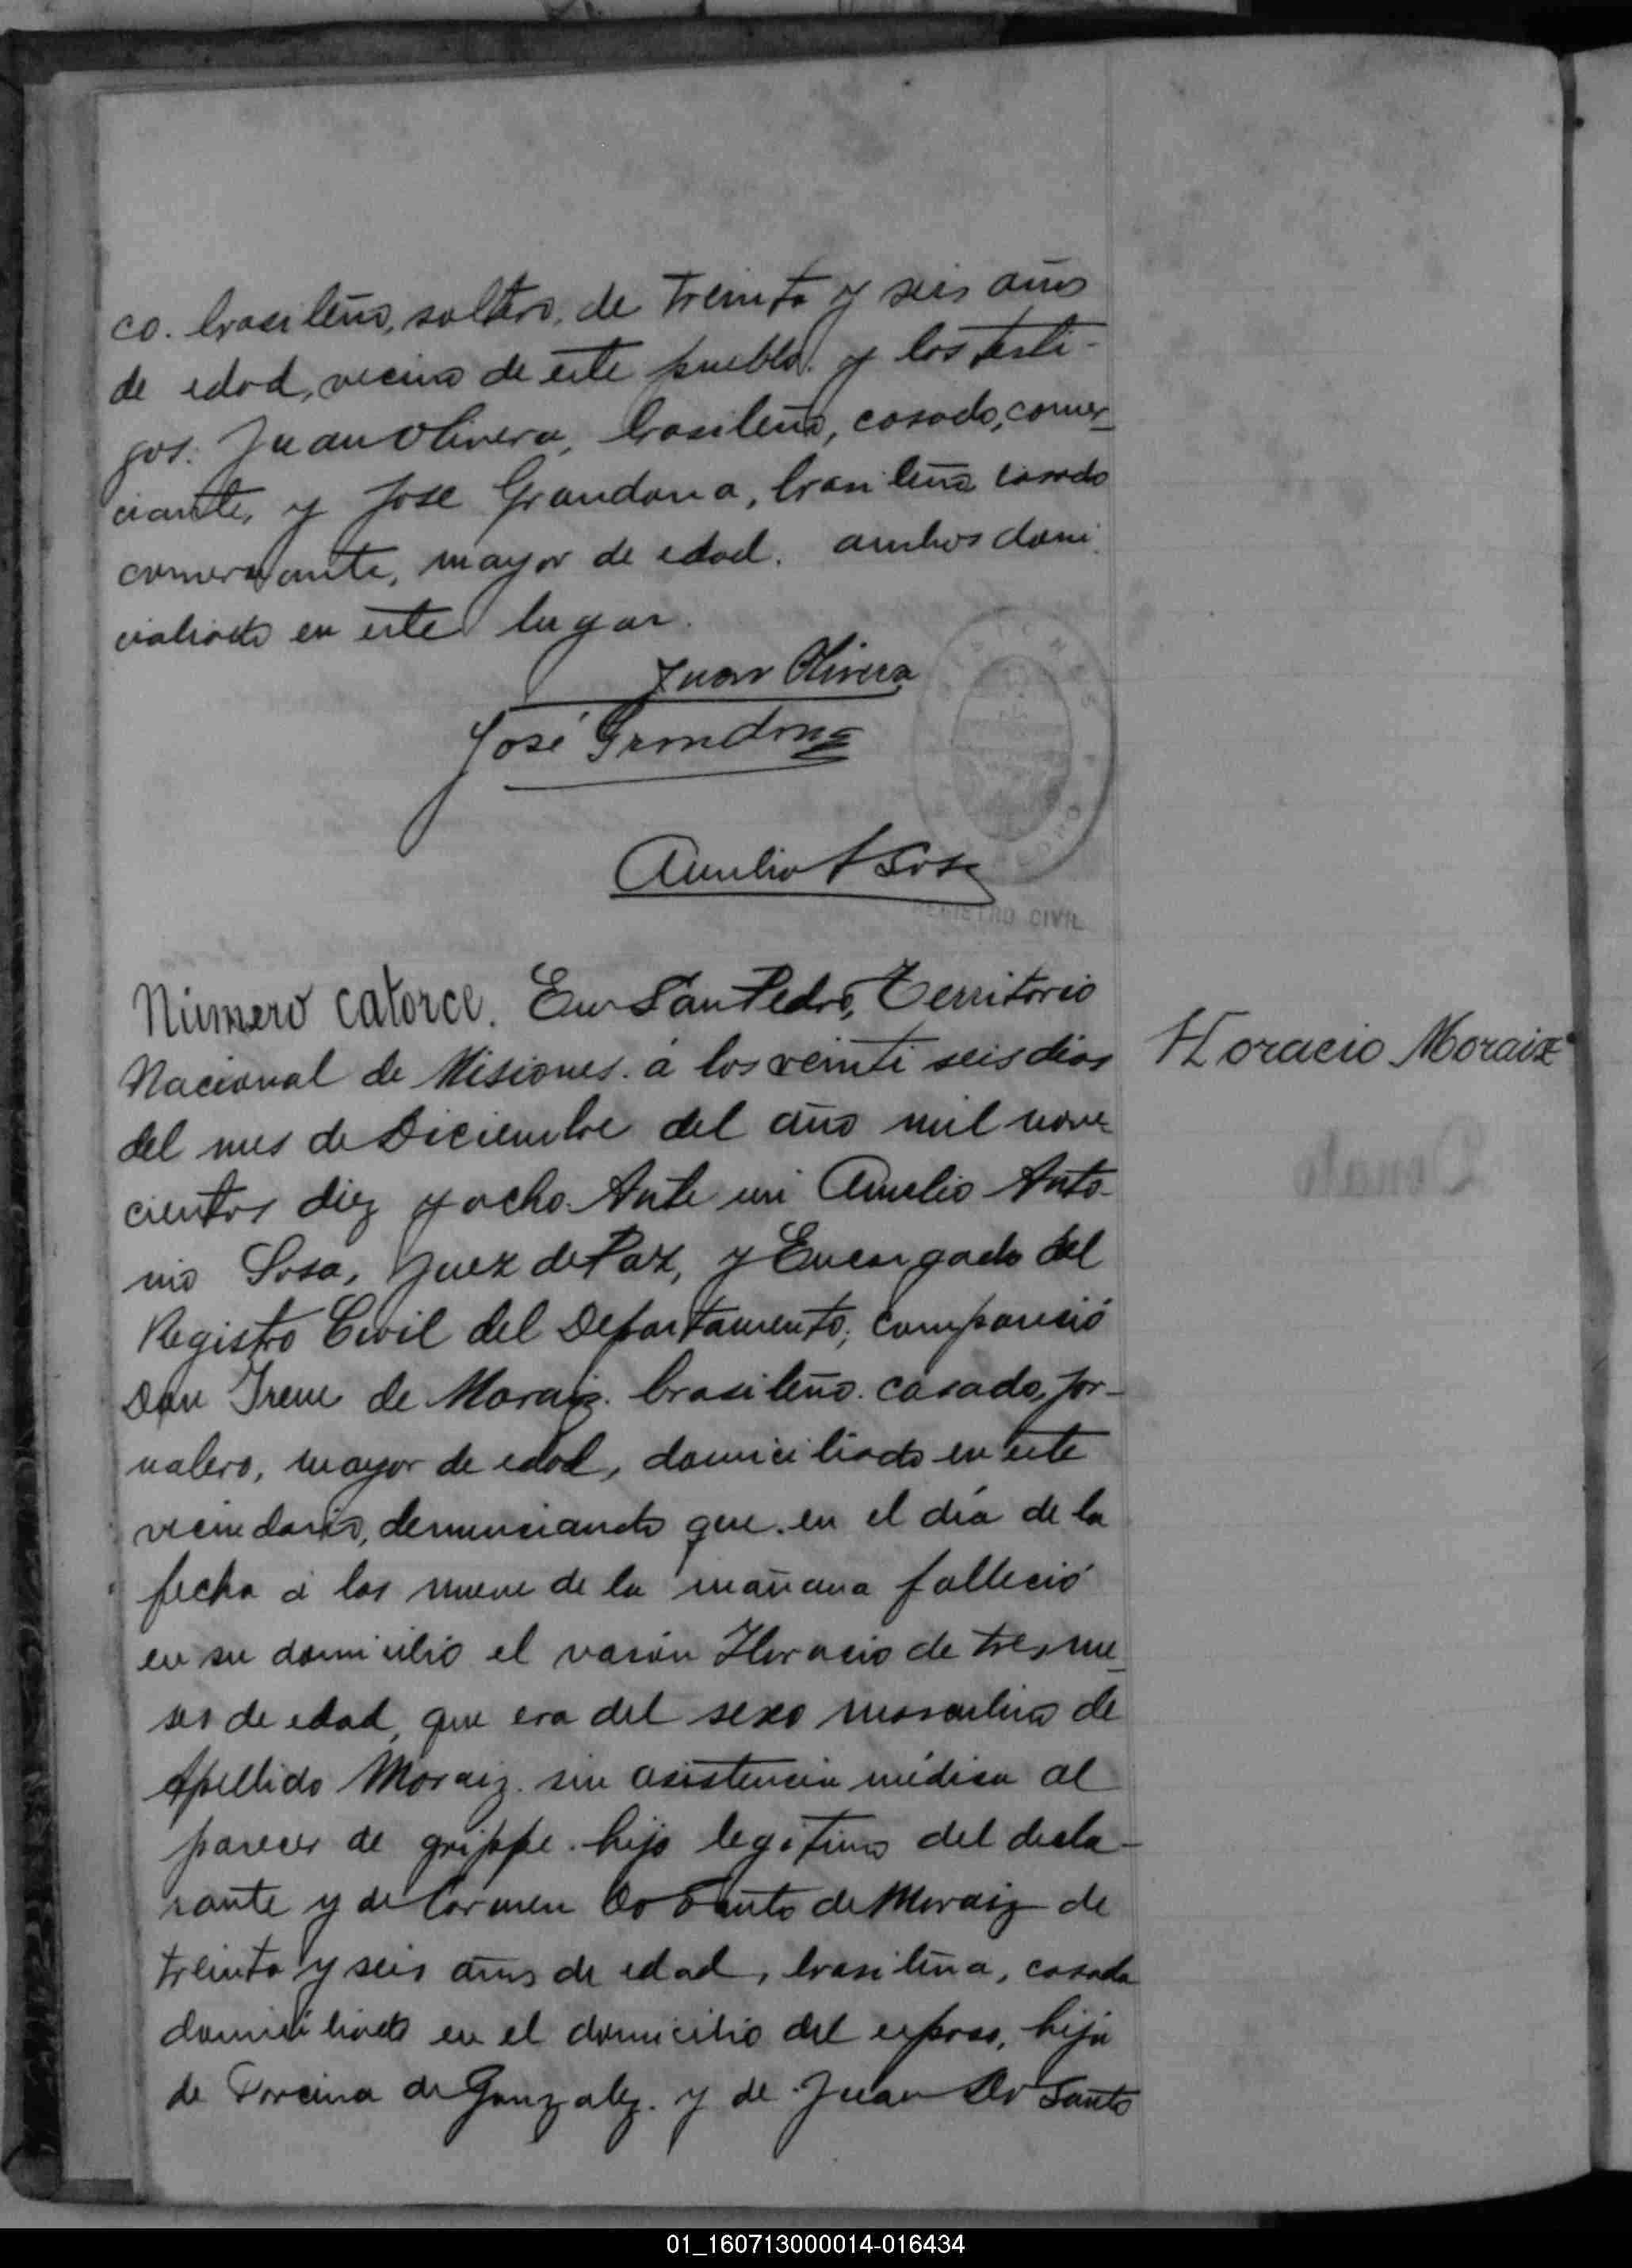 co. brasileño, soltero, de treinta y seis años
de edad, vecino de este pueblo. y los testi-
gos. Juan Olivera, brasileño, casado, comer-
ciante, y José Grandona, brasileño casado
comerciante, mayor de edad. ambos domi
ciliado en este lugar.
Juan Olivera
José Grondona
Aurelio A Sosa
REGISTRO CIVIL
Número catorce. En San Pedro, Territorio
Horacio Moraiz
Nacional de Misiones. a los veinti seis dias
del mes de Diciembre del año mil nove-
cientos diez y ocho. Ante mi Aurelio Anto-
nio Sosa, Juez de Paz, y Encargado del
Registro Civil del Departamento, compareció
Don Irene de Moraiz. brasileño. casado, jor-
nalero, mayor de edad, domiciliado en este
vecindario, denunciando que en el dia de la
fecha a las nueve de la mañana falleció
en su domicilio el varón Horacio de tres me-
ses de edad, que era del sexo masculino de
Apellido Moraiz. sin asistencia médica al
parecer de grippe. hijo legitimo del decla-
rante y de Carmen Do Santo de Moraiz de
treinta y seis años de edad, brasileña, casada
domiciliado en el domicilio del esposo, hija
de de Gonzalez. y de Juan Do Santo